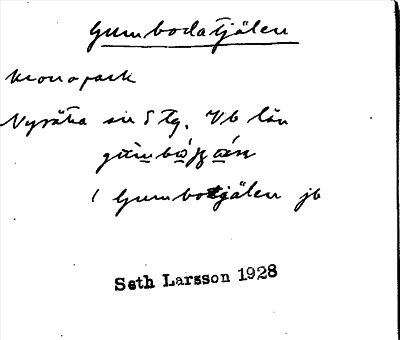 Gumbodatjälen
Kronopark
Nysätra sn S tg. Vb län
( Gumbotjälen jb
Seth Larsson 1928